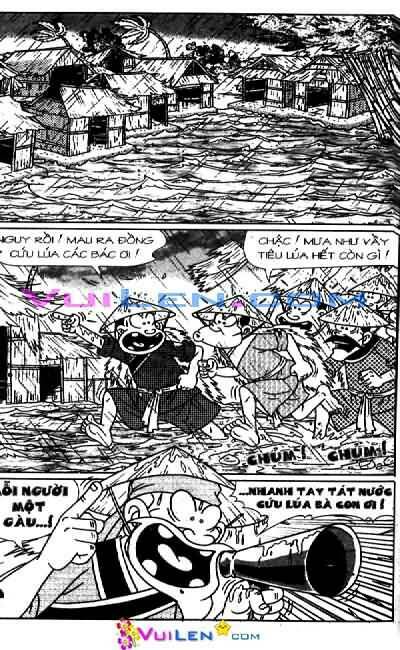 NGUY RỒI! MAU RA ĐỒNG
CỨU LÚA CÁC BÁC ƠI!
CHẬC! MƯA NHƯ VẦY
TIÊU LÚA HẾT CÒN GÌ!
VuiLen.com
CHŨM! CHŨM!
MỖI NGƯỜI
MỘT
GÀU...!
...NHANH TAY TÁT NƯỚC
CỨU LÚA BÀ CON ƠI!
VuiLen.com